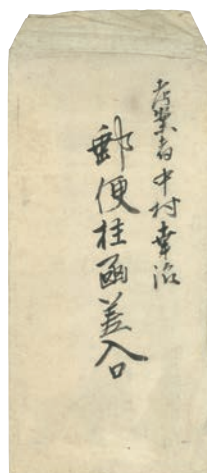 考案者中村幸治
郵便柱函差入口